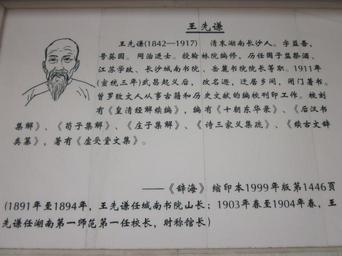 王先谦
王先谦(1842—1917) 清末湖南长沙人。字益吾，
号葵园。同治进士。授翰林院编修，历任国子监祭酒、
江苏学政、长沙城南书院、岳麓书院院长等职。1911年
(宣统三年)武昌起义后，改名遁，迁居乡间，闭门著书。
曾罗致文人从事古籍和历史文献的编校刊印工作。校刻
有《皇清经解续编》，编有《十朝东华录》、《后汉书
集解》、《荀子集解》、《庄子集解》、《诗三家义集疏》、《续古文辞
类纂》，著有《虚受堂文集》。
——《辞海》缩印本1999年版第1446页
(1891年至1894年，王先谦任城南书院山长；1903年春至1904年春，王
先谦任湖南第一师范第一任校长，时称馆长)